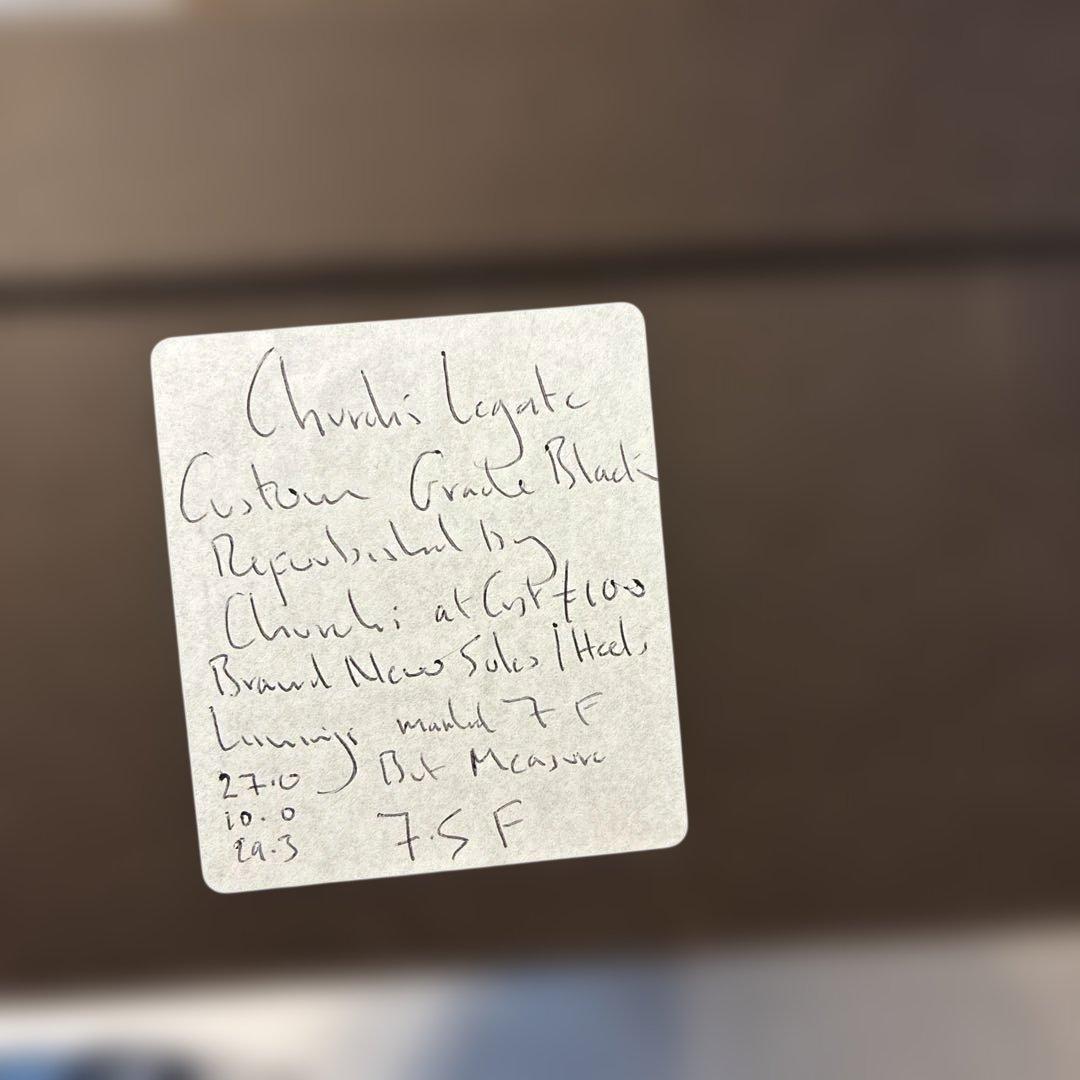 Church's Legate
Custom Grade Black
Refurbished by
Church's at Cost £100
Brand New Soles / Heels
Linings marked 7 F
27.0 But Measure
10.0
29.3 7.5 F